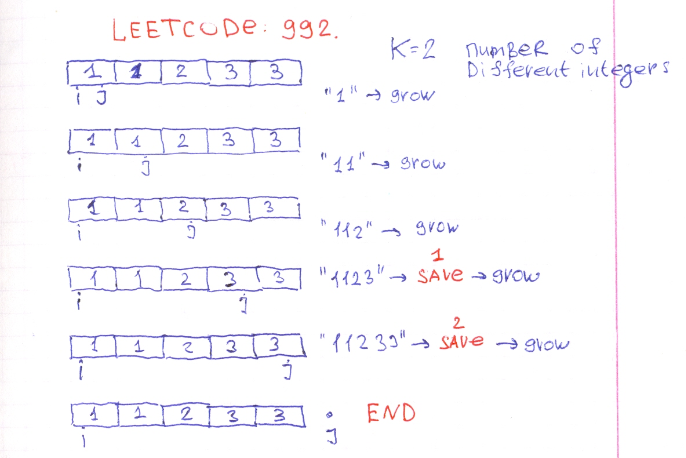 LEETCODE: 992.
K=2 number of
Different integers
1 1 2 3 3
i j
"1" → grow
1 1 2 3 3
i j
"11" → grow
1 1 2 3 3
i j
"112" → grow
1 1 2 3 3
i j
1
"1123" → SAVE → grow
1 1 2 3 3
i j
2
"11233" → SAVE → grow
1 1 2 3 3
i j
END